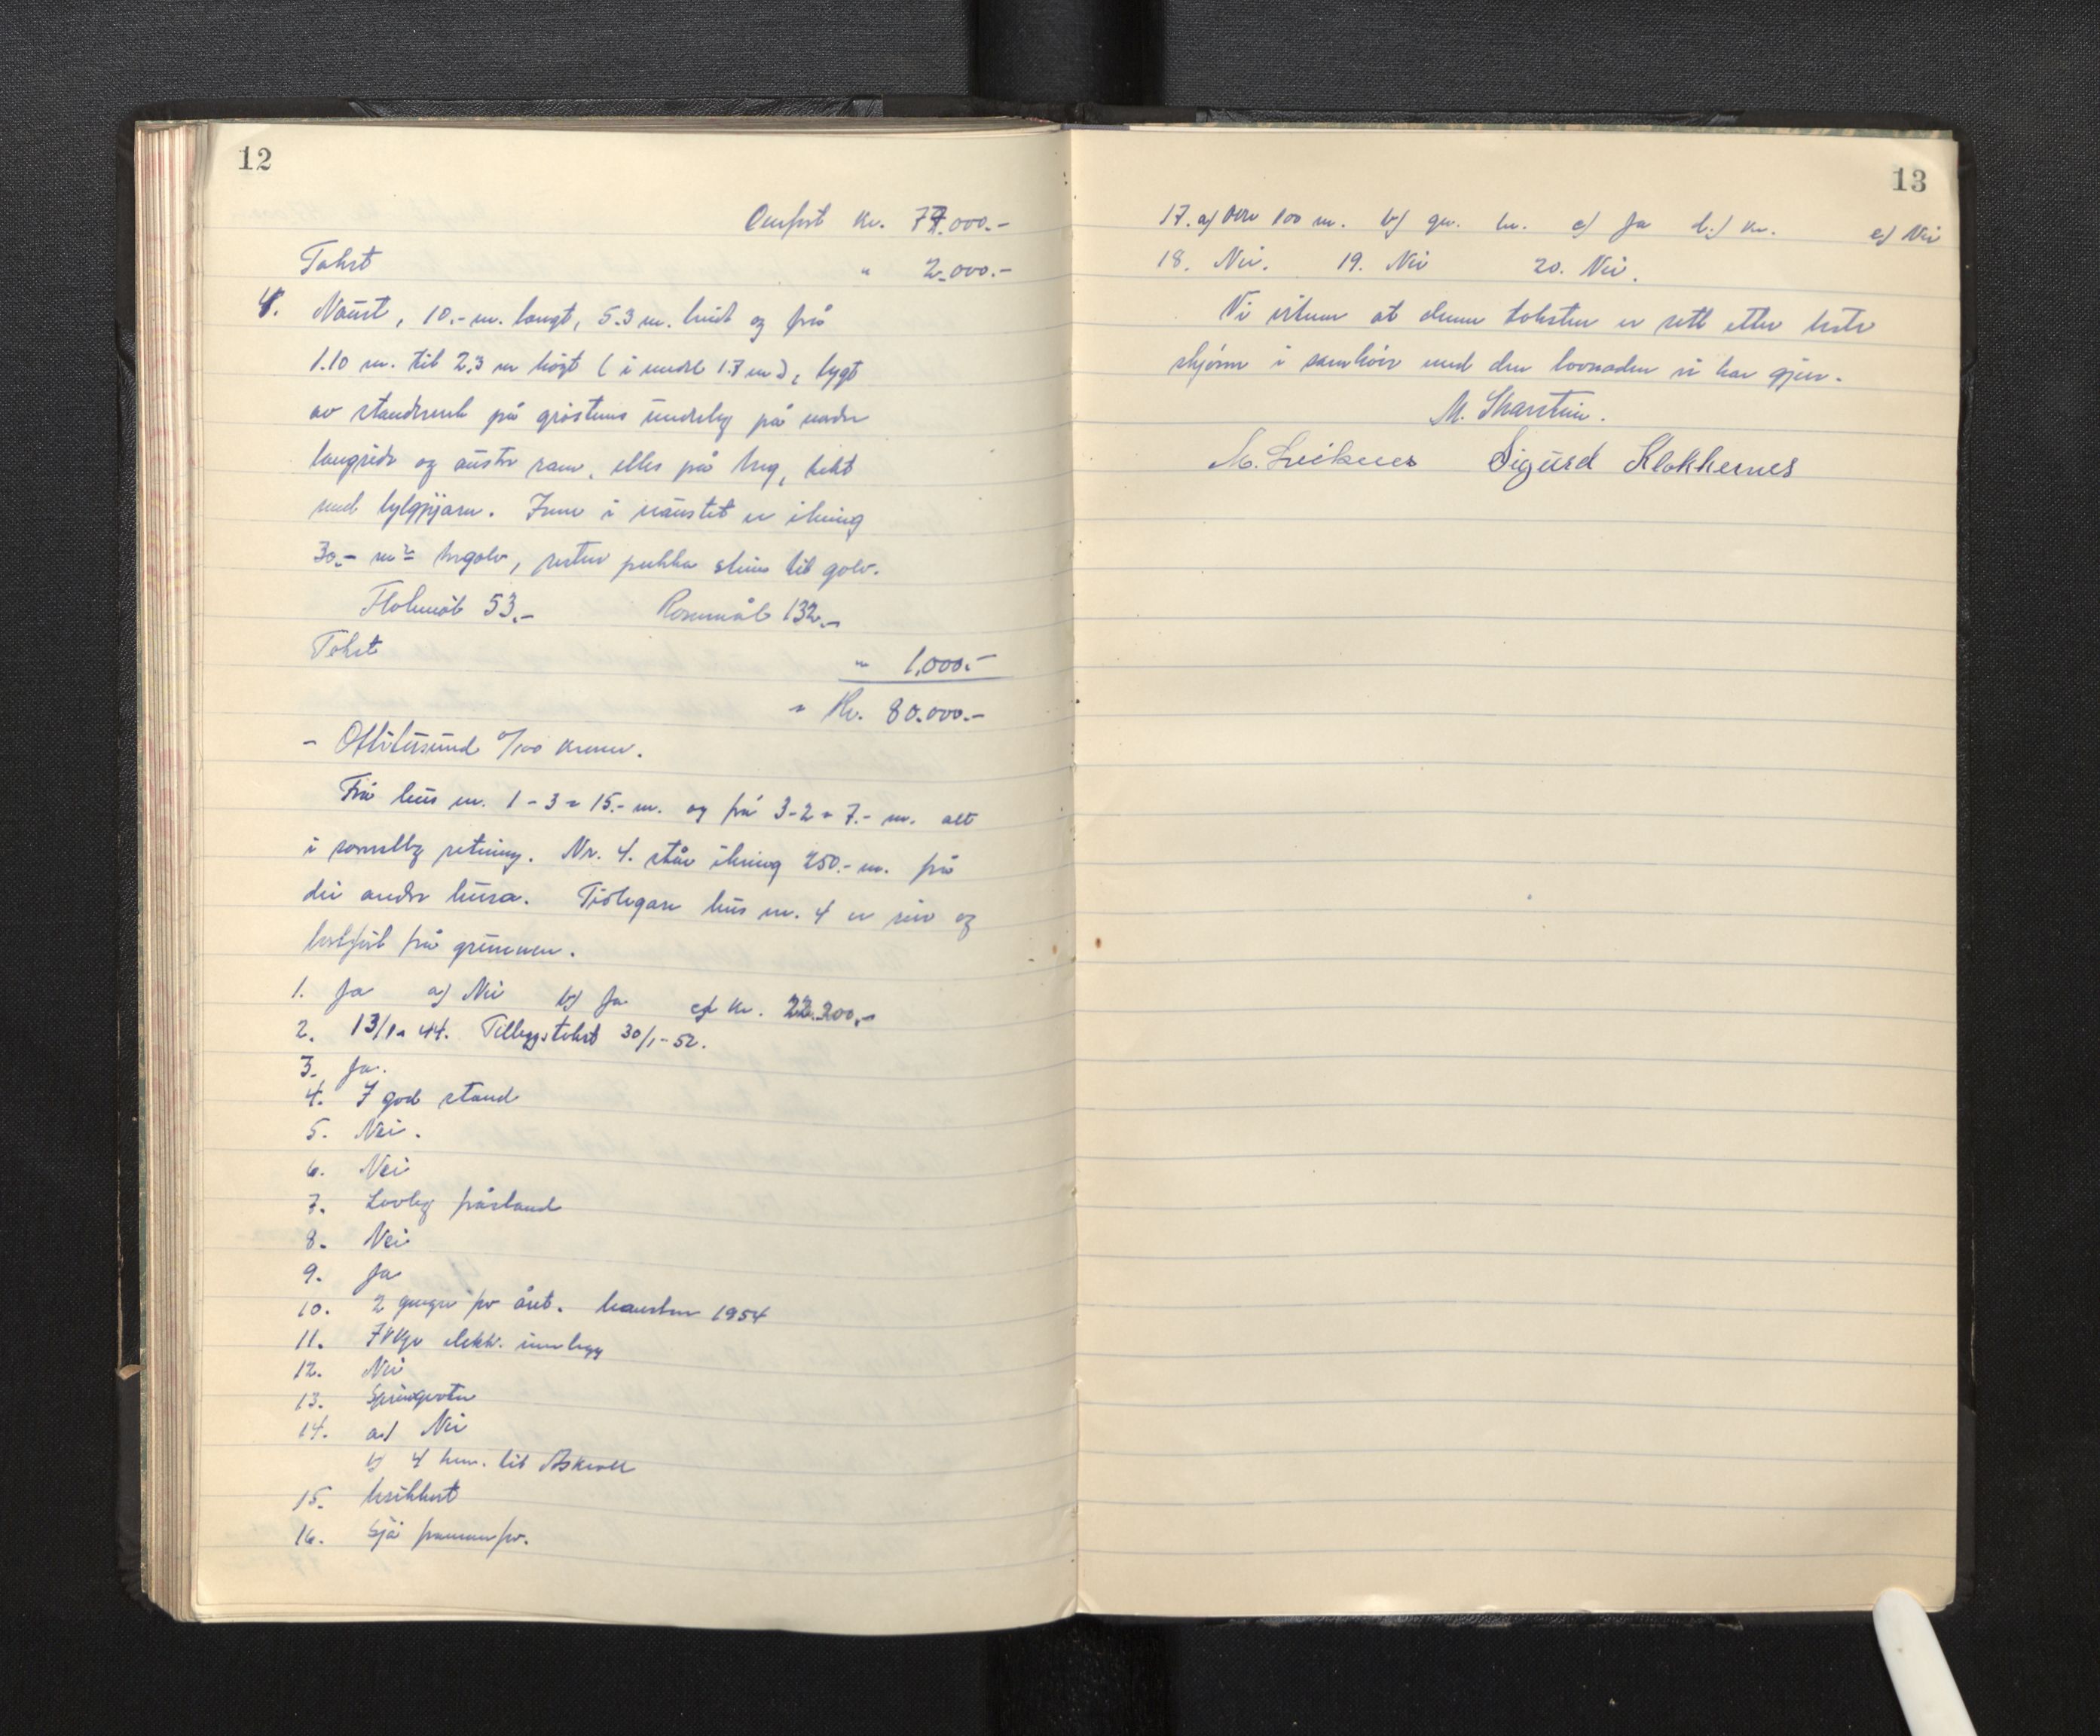 12
Omført kr. 77.000.-
Takst " 2.000.-
4. Naust, 10.- m. langt, 5.3 m. breidt og frå
1.10 m. til 2.3 m høgt (i medel 1.7 m), bygt
av standverk på gråsteins underlag på nedre
langside og austre ende, elles på treg, tekt
med bylgjejarn. Inne i naustet er ikring
30.- m² tregolv, resten pukka stein til golv.
Flatemål 53.- Rommål 132.-
Takst " 1.000.-
= Kr. 80.000.-
- Ottitusund 0/100 kroner.
Frå hus nr. 1 - 3 = 15.- m. og frå 3-2 = 7.- m. alt
i retning. Nr. 4. står ikring 250.- m. frå
dei andre husa. Tidlegare hus nr. 4 er rive og
bortført frå grunnen.
1. Ja a) Nei b) Ja c) kr. 22.200,-
2. 13/1- 44. Tilleggstakst 30/1-52.
3. Ja.
4. I god stand
5. Nei.
6. Nei
7. Lovleg påstand
8. Nei
9. Ja
10. 2 gonger pr året. hausten 1954
11. elektr. innlegg
12. Nei
13. Springvatn
14. a) Nei
b) 4 km. til Askvoll
15.
16. Sjå framanfor.
13
17. a) Over 100 m. b) gr. br. c) Ja d.) kr. e) Nei
18. Nei. 19. Nei 20. Nei.
Vi vitnar at denne taksten er sett etter beste
skjønn i samhøve med den lovnaden vi har gjeve.
M. Skarstein.
M. Leiknes Sigurd Klokkernes